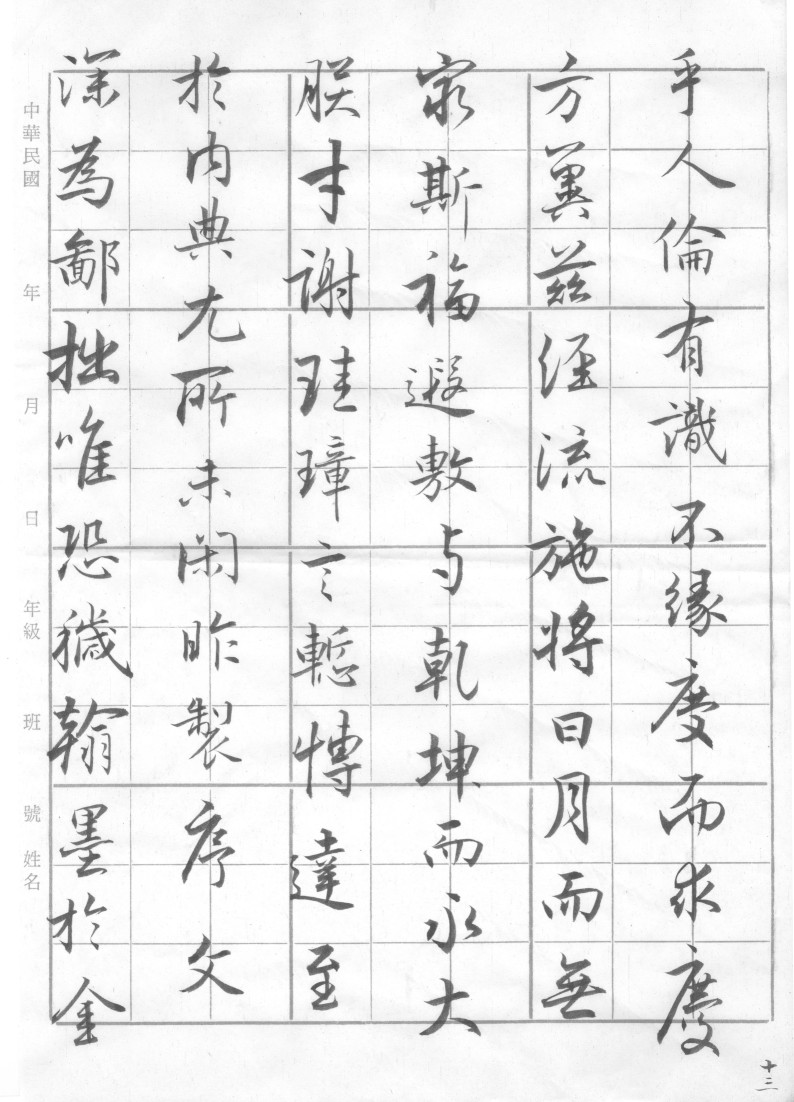 乎人倫有識不緣慶而求慶
方冀茲經流施將日月而無
窮斯福遐敷与乾坤而永大
朕才謝珪璋言慙博達至
於內典尤所未閑昨製序文
深為鄙拙唯恐穢翰墨於金
中華民國 年 月 日 年級 班 號 姓名
十三